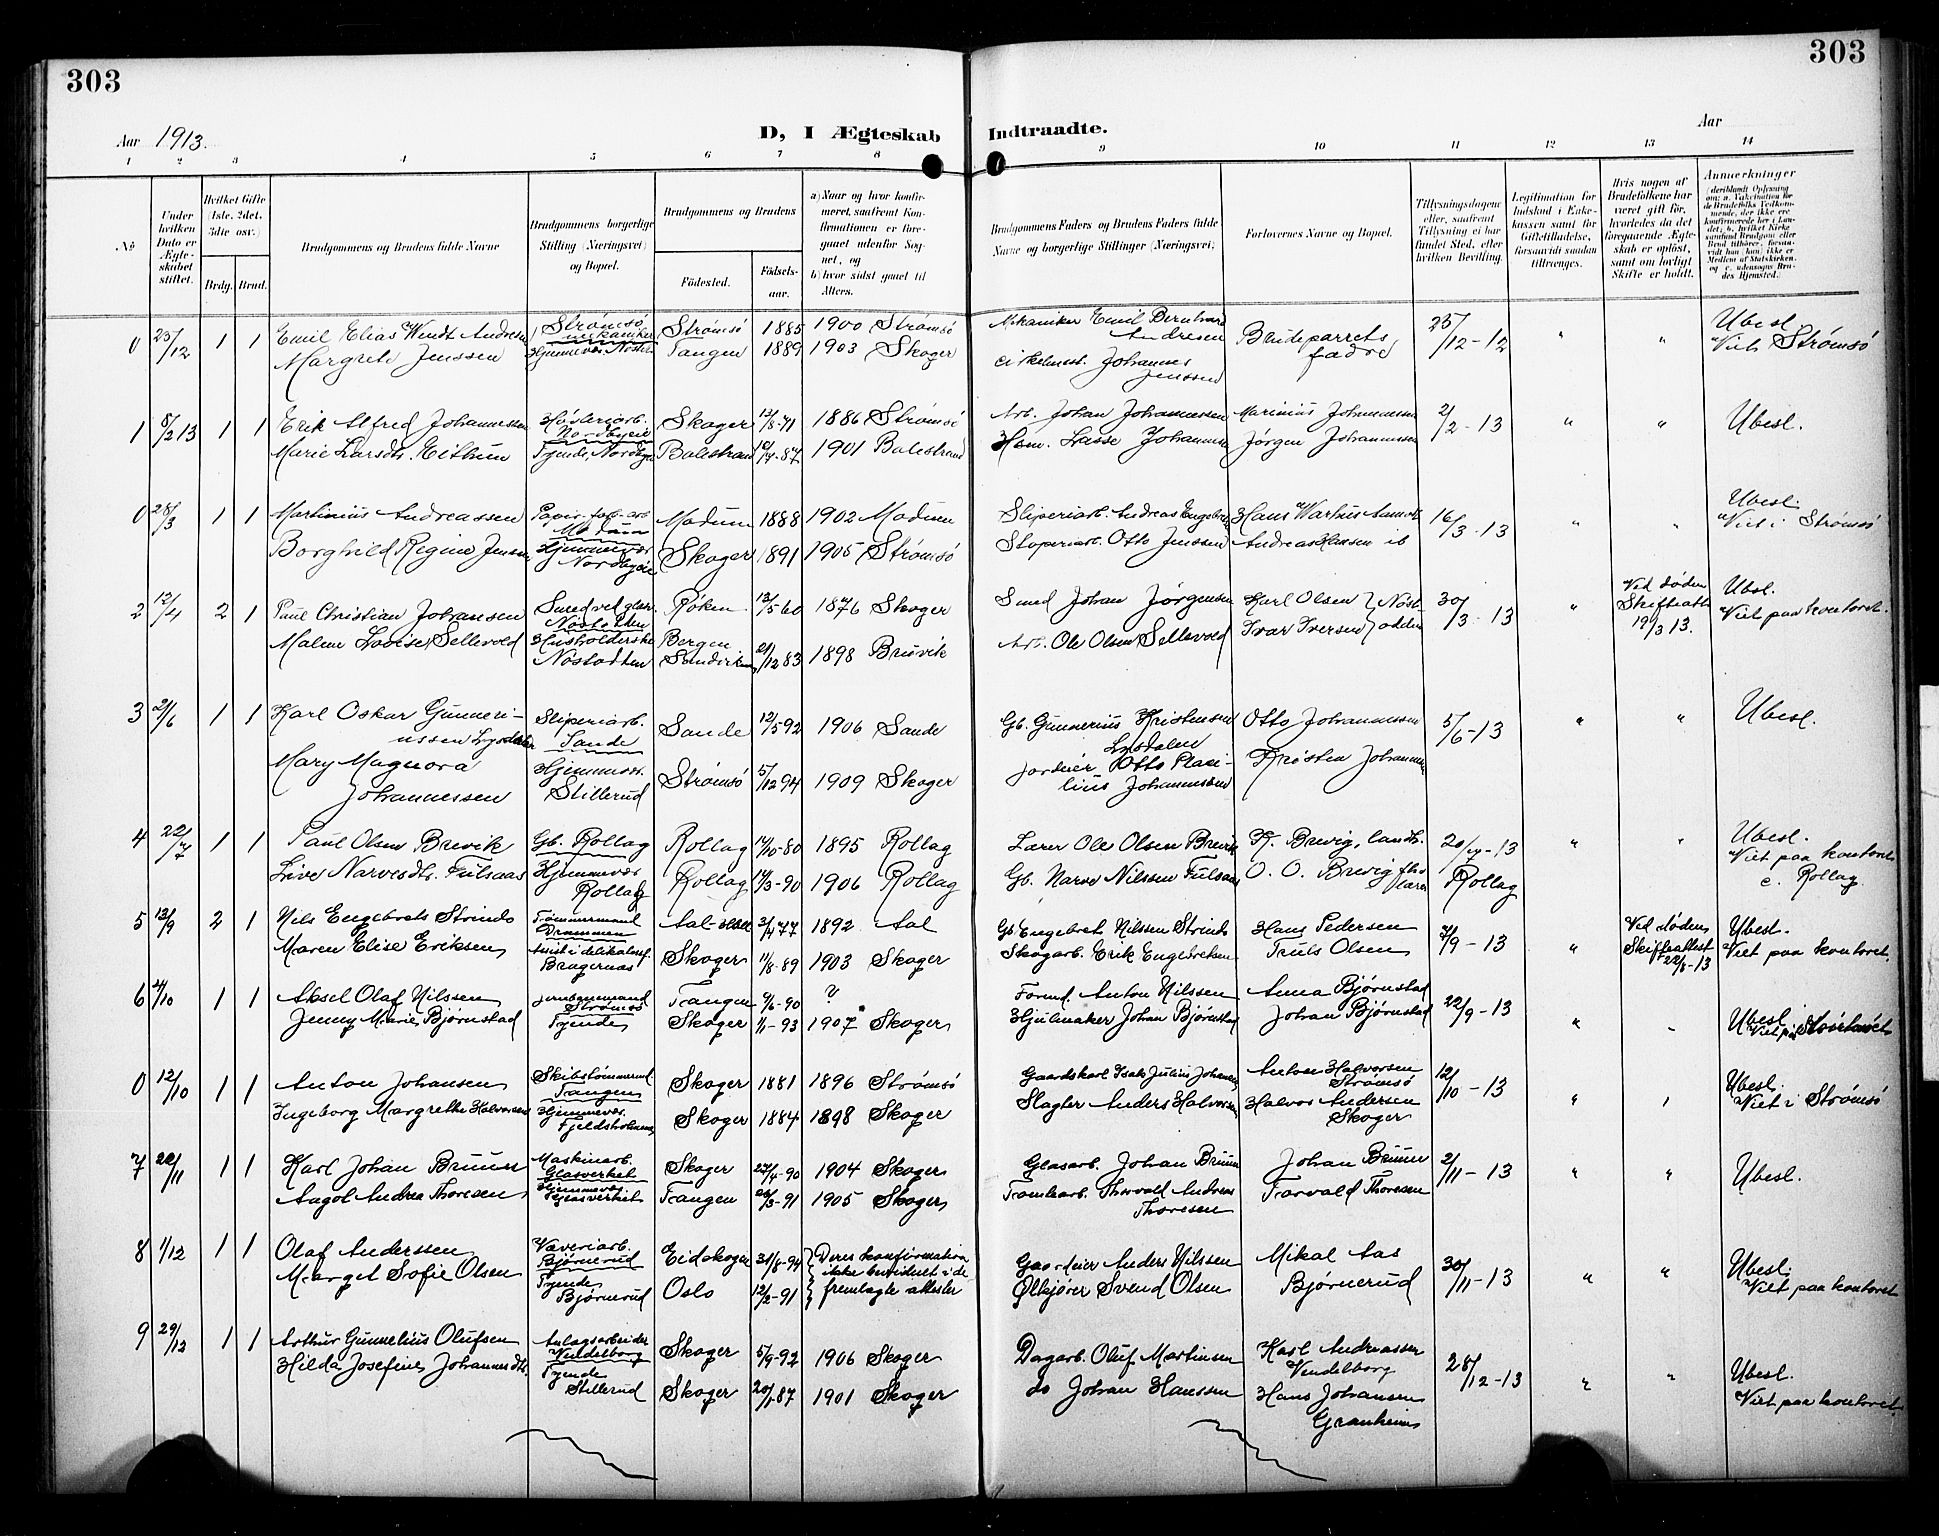 303
303
Aar 1913.
D, I Ægteskab Indtraadte.
Aar
1 2 3 4 5 6 7 8 9 10 11 12 13 14
No
Under hvilken Dato er Ægteskabet stiftet.
Hvilket Gifte (1ste, 2det, 3die osv.)
Brdg. Brud.
Brudgommens og Brudens fulde Navne
Brudgommens borgerlige Stilling (Næringsvei) og Bopæl.
Brudgommens og Brudens
Fødested.
Fødselsaar.
a) Naar og hvor konfirmeret, saafremt Konfirmationen er foregaaet udenfor Sognet, og
b) hvor sidst gaaet til Alters.
Brudgommens Faders og Brudens Faders fulde Navne og borgerlige Stillinger (Næringsvei)
Forlovernes Navne og Bopæl.
Tillysningsdagene eller, saafremt Tillysning ei har fundet Sted, efter hvilken Bevilling.
Legitimation for Indskud i Enkekassen samt for Giftetilladelse, forsaavidt saadan tiltrænges.
Hvis nogen af Brudefolkene har været gift før, hvorledes da det foregaaende Ægteskab er opløst, samt om lovligt Skifte er holdt.
Anmerkninger
0 25/12 1 1 Emil Elias Windt Andresen Strømsö mekaniker Strömsö 1885 1900 Strömsö Mekaniker Emil Bernhard Andresen Brudeparrets fædre 25/12-12 " " Ubesl.
Margrete Jenssen Hjemmevær. Tangen 1889 1903 Skoger Johannes Jenssen Viet i Strömsö
1 8/2 13 1 1 Erik Alfred Johannessen Nordbyeie Skoger 13/8-71 1886 Strömsö Arb. Johan Johannessen Marinius Johannessen 2/2-13 " " Ubesl.
Marie Larsdtr. Eithun Tjende, Balestrand 10/7-87 1901 Balestrand Lasse Johannessen Jørgen Johannessen
0 28/3 1 1 Martinius Andreassen Papir. fab. arb Modum Modum 1888 1902 Modum Sliperiarb. Andreas Hans 16/3-13 " " Ubesl.
Borghild Regine Jenssen Hjemmevær Nordbyeie Skoger 1891 1905 Strömsö Otto Jenssen Andreas Hansen ib Viet i Strömsö
2 12/4 2 1 Paul Christian Johansen Smed ved glasv. Nöstodden Röken 13/5 60 1876 Skoger Smed Johan Jörgensen Karl Olsen Nöstodden 30/3-13 " Ved døden Skifteatt. 19/3 13. Ubesl. Viet paa kontoret.
Lovise Sellevold Husholderske Nöstodden Bergen 21/12 83 1898 Bruvik Arb. Ole Olsen Sellevold Ivar Iversen
3 21/6 1 1 Karl Oskar Gunneriussen Sliperiarb. Sande Sande 12/5 92 1906 Sande Gb. Gunnerius Kristensen Lysdalen Otto Johannessen 5/6-13 " " Ubesl.
Mary Magnora Johannessen Hjemmevær. Stillerud Strömsö 5/12 94 1909 Skoger Jordeier Otto Johannessen Kristen Johannessen
4 22/7 1 1 Paul Olsen Brevik Gb. Rollag Rollag 14/10-80 1895 Rollag Lærer Ole Olsen Brevik K. Brevig, landh. 20/7-13 " " Ubesl.
Live Narvesdtr. Fulsaas Hjemmevær Rollag Rollag 14/3-90 1906 Rollag Gb. Narve Nilssen Fulsaas O. O. Brevig Rollag Viet paa kontoret c. Rollag
5 13/9 2 1 Nils Engebrets Strinde Tømmermand Drammen Aal 3/4 77 1892 Aal Gb Engebret Nilssen Strinde Hans Pedersen 7/9-13 " Ved døden Skifteattest 22/8-13 Ubesl.
Maren Elise Eriksen Bragernas Skoger 11/8-89 1903 Skoger Skogarb. Erik Engebretsen Truls Olsen Viet paa kontoret.
6 4/10 1 1 Aksel Olaf Nilssen Jernbanemand Strömsö Tangen 9/6-90 ? Formd. Anton Nilssen Anna Bjørnstad 22/9-13 " " Ubesl.
Jenny Marie Bjørnstad Tjende Skoger 1/1-93 1907 Skoger Hjulmaker Johan Bjørnstad Johan Bjørnstad
0 12/10 1 1 Anton Johansen Skibstømmermd Tangen Skoger 1881 1896 Strömsö Gaardskarl Isak Julius Johansen Anton Halvorsen Strömsö 12/10-13 " " Ubesl.
Ingeborg Margrethe Halvorsen Hjemmevær. Fjeldsholmen Skoger 1884 1898 Skoger Slagter Anders Halvorsen Halvor Andersen Skoger Viet i Strömsö
7 22/11 1 1 Karl Johan Bruun Maskinarb. Glasverket Skoger 27/4-90 1904 Skoger Glasarb. Johan Bruun Johan Bruun 2/11-13 " " Ubesl.
Aagot Andrea Thoresen Hjemmevær Glasverket Tangen 26/3-91 1905 Skoger Tomtearb. Thorvald Andreas Thoresen Torvald Thoresen
8 1/12 1 1 Olaf Anderssen Væveriarb. Bjørnerud Eidskogen 31/8-94 Deres konfirmation ikke bevidnet i de fremlagte attester Gaardeier Anders Nilssen Mikal Aas 30/11-13 " " Ubesl.
Margit Sofie Olsen Tjende Bjørnerud Oslo 12/2-91 Ølkjører Svend Olsen Bjørnerud Viet paa kontoret
9 29/12 1 1 Arthur Gunnelius Olufsen Anlagsarbeider Vindelborg Skoger 5/9-92 1906 Skoger Dagarb. Oluf Martinsen Karl Andreassen Vindelborg 28/12-13 " " Ubesl.
Hilda Josefine Johannesdtr. Tjende Stillerud Skoger 20/1-87 1901 Skoger do Johan Hanssen Hans Johansen Granheim Viet paa kontoret